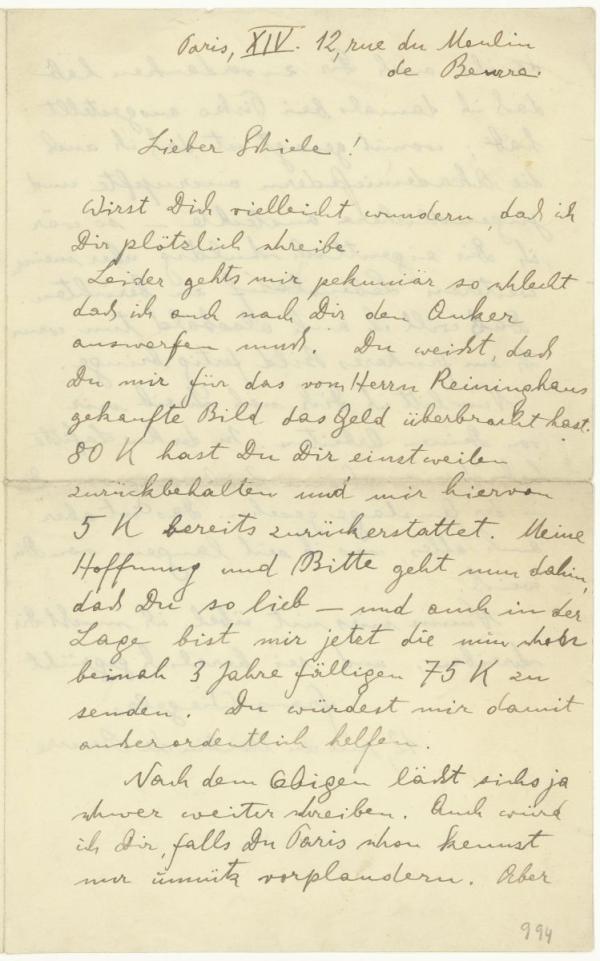 Paris, XIV. 12, rue du Moulin
de Beurre.
Lieber Schiele!
Wirst Dich vielleicht wundern, daß ich
Dir plötzlich schreibe.
Leider gehts mir pekuniär so schlecht
daß ich auch nach Dir den Anker
auswerfen muß. Du weißt, daß
Du mir für das vom Herrn Reininghaus
gekaufte Bild das Geld überbracht hast.
80 K hast Du Dir einstweilen
zurückbehalten und mir hiervon
5 K bereits zurückerstattet. Meine
Hoffnung und Bitte geht nun dahin,
daß Du so lieb – und auch in der
Lage bist mir jetzt die nun schon
beinah 3 Jahre fälligen 75 K zu
senden. Du würdest mir damit
außerordentlich helfen.
Nach dem Obigen läßt sichs ja
schwer weiter schreiben. Auch würd
ich Dir, falls Du Paris schon kennst
nur unnütz vorplaudern. Aber
994